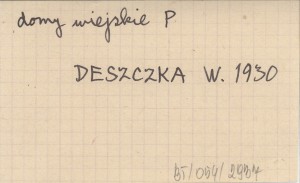 domy wiejskie P
DESZCZKA W. 1930
BT/054/2937